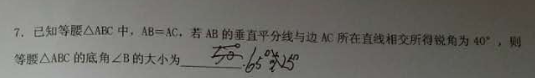 7. 已知等腰△ABC 中，AB=AC，若 AB 的垂直平分线与边 AC 所在直线相交所得锐角为 40°，则
等腰△ABC 的底角∠B 的大小为 50° 65°或25°